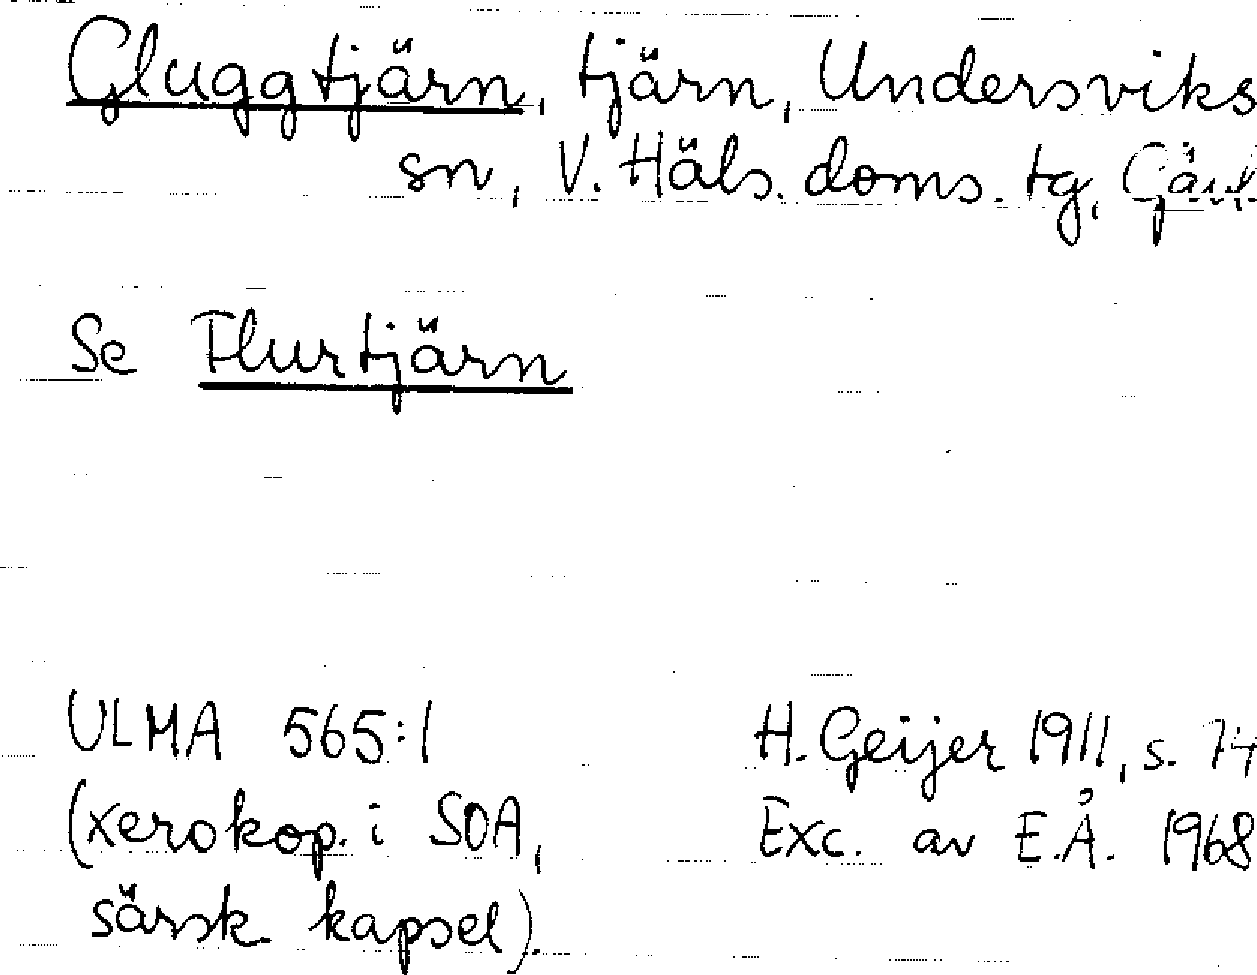 Gluggtjärn, tjärn, Undersviks
sn, V. Häls. doms. tg,
Se Flurtjärn
ULMA 565:1
(xerokop. i SOA,
särsk. kapsel).
H. Geijer 1911, s. 74
Exc. av E.Å. 1968